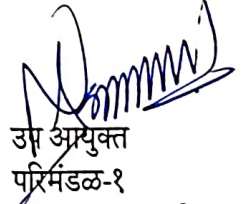 उप आयुक्त
परिमंडळ-१